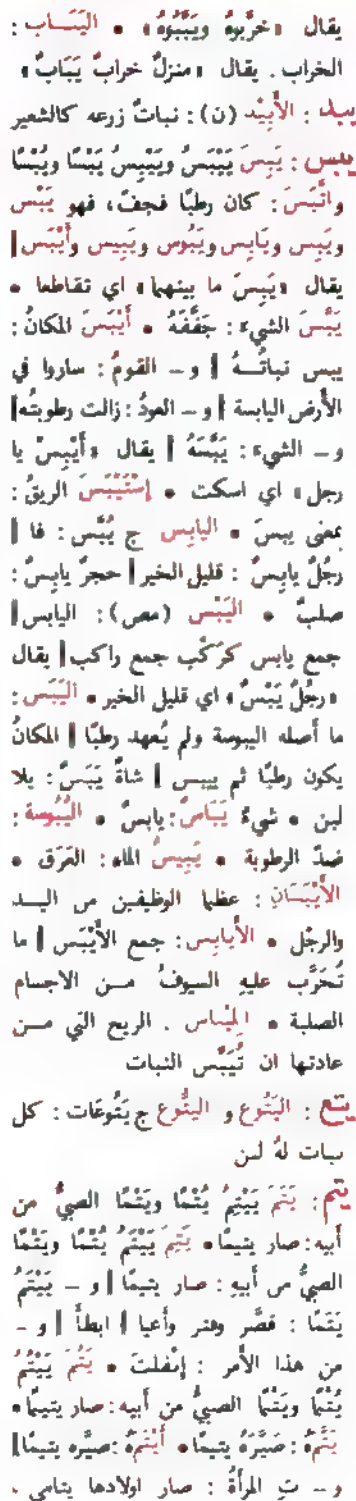 يقال «خرَّبوهُ ويَبَّبُوهُ» • اليَبَـاب :
الخراب. يقال «منزلٌ خرابٌ يَبَابٌ»
يبد : الأَبِيْد (ن): نباتٌ زرعه كالشعير
يبس : يَبِسَ يَيْبَسُ ويَيْبِسُ يَبْسًا ويُبْسًا
واتَّبَسَ: كان رطبًا فجفَّ، فهو يَبْس
ويَبِس ويَابِس ويَبُوس ويَبِيس وأَيْبَس |
يقال «يَبِسَ ما بينهما» اي تقاطعا •
يَبَّسَ الشيءَ: جَفَّفَهُ • أَيْبَسَ المكانُ:
يبس نباتُـهُ | و – القومُ: ساروا في
الأرض اليابسة | و – العودُ: زالت رطوبتُه |
و – الشيءَ: يَبَّسَهُ | يقال «أَيْبِسْ يا
رجل» اي اسكت • إِسْتَيْبَسَ الريقُ:
بمعنى يبسَ • اليابِس ج يُبَّس : فا |
رجُلٌ يابِسٌ : قليل الخير | حجرٌ يابِسٌ :
صلبٌ • اليَبْس (مص): اليابس |
جمع يابس كرَكْب جمع راكب | يقال
«رجُلٌ يَبْسٌ» اي قليل الخير • اليَبَس :
ما أصله اليبوسة ولم يُعهد رطبًا | المكانُ
يكون رطبًا ثم ييبس | شاةٌ يَبَسٌ: بلا
لبن • شيءٌ يَبَاسٌ: يابسٌ • اليُبُوسة :
ضدّ الرطوبة • يَبِيسُ الماءِ: العَرَق •
الأَيْبَسَانِ : عظما الوظيفين من اليــد
والرِجْل • الأَيابِس: جمع الأَيْبَس | ما
تُجَرَّب عليهِ السيوفُ مــن الاجسام
الصلبة • المِيْبَاس . الريح التي مــن
عادتها ان تُيَبِّس النبات
يتع : اليَتُوع و اليَتُّوع ج يَتُوعَات : كل
نبات لهُ لبن
يتم : يَتَمَ يَيْتِمُ يُتْمًا ويَتْمًا الصبيُّ من
أبيه: صار يتيمًا • يَتِمَ يَيْتَمُ يُتْمًا ويَتْمًا
الصبيُّ من أبيهِ : صار يتيمًا | و – يَيْتَمُ
يَتَمًا : قصَّر وفتر وأعيا | ابطأَ | و –
من هذا الأمر : إِنفلتَ • يَتُمَ يَيْتُمُ
يُتْمًا ويَتْمًا الصبيُّ من أبيه: صار يتيمًا •
يَتَّمَهُ : صَيَّرَهُ يتيمًا • أَيْتَمَهُ: صيَّره يتيمًا |
و – تِ المرأةُ : صار اولادها يتامى .